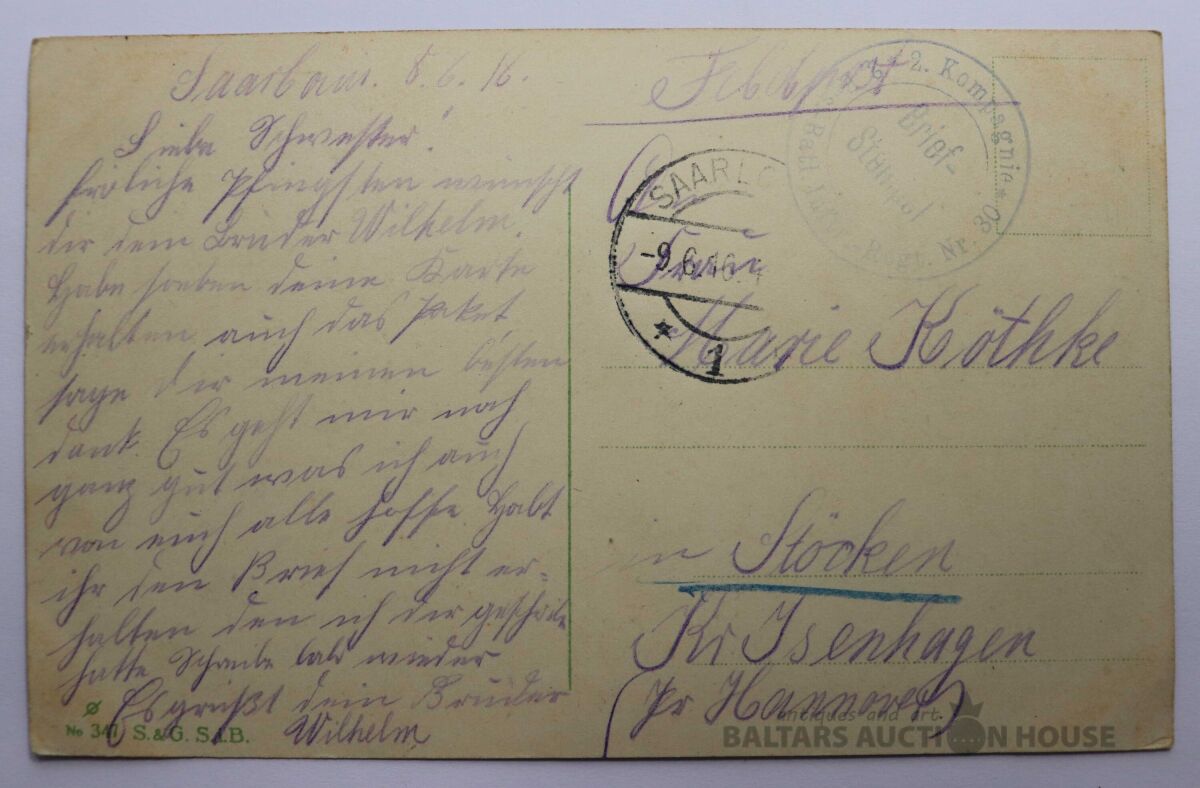 8.6.16.
Liebe Schwester!
fröliche Pfingsten wünscht
dir dein Bruder Wilhelm.
Habe soeben deine Karte
erhalten auch das Paket
sage dir meinen besten
dank. Es geht mir noch
ganz gut was ich auch
von euch alle hoffe Habt
ihr den Brief nicht er=
halten den ich dir geschrieb
hatte Schreibe bald wieder
Es grüßt dein Bruder
Wilhelm
No 347 S. & G. S. i. B.
Feldpost
2. Kompagnie
Brief-
Stempel
Regt. Nr. 30
SAARLO
-9.6.16.
* 1
An
Frau
Marie Köthke
in Stöcken
Kr Isenhagen
(Pr Hannover)
antiques and art
BALTARS AUCTION HOUSE